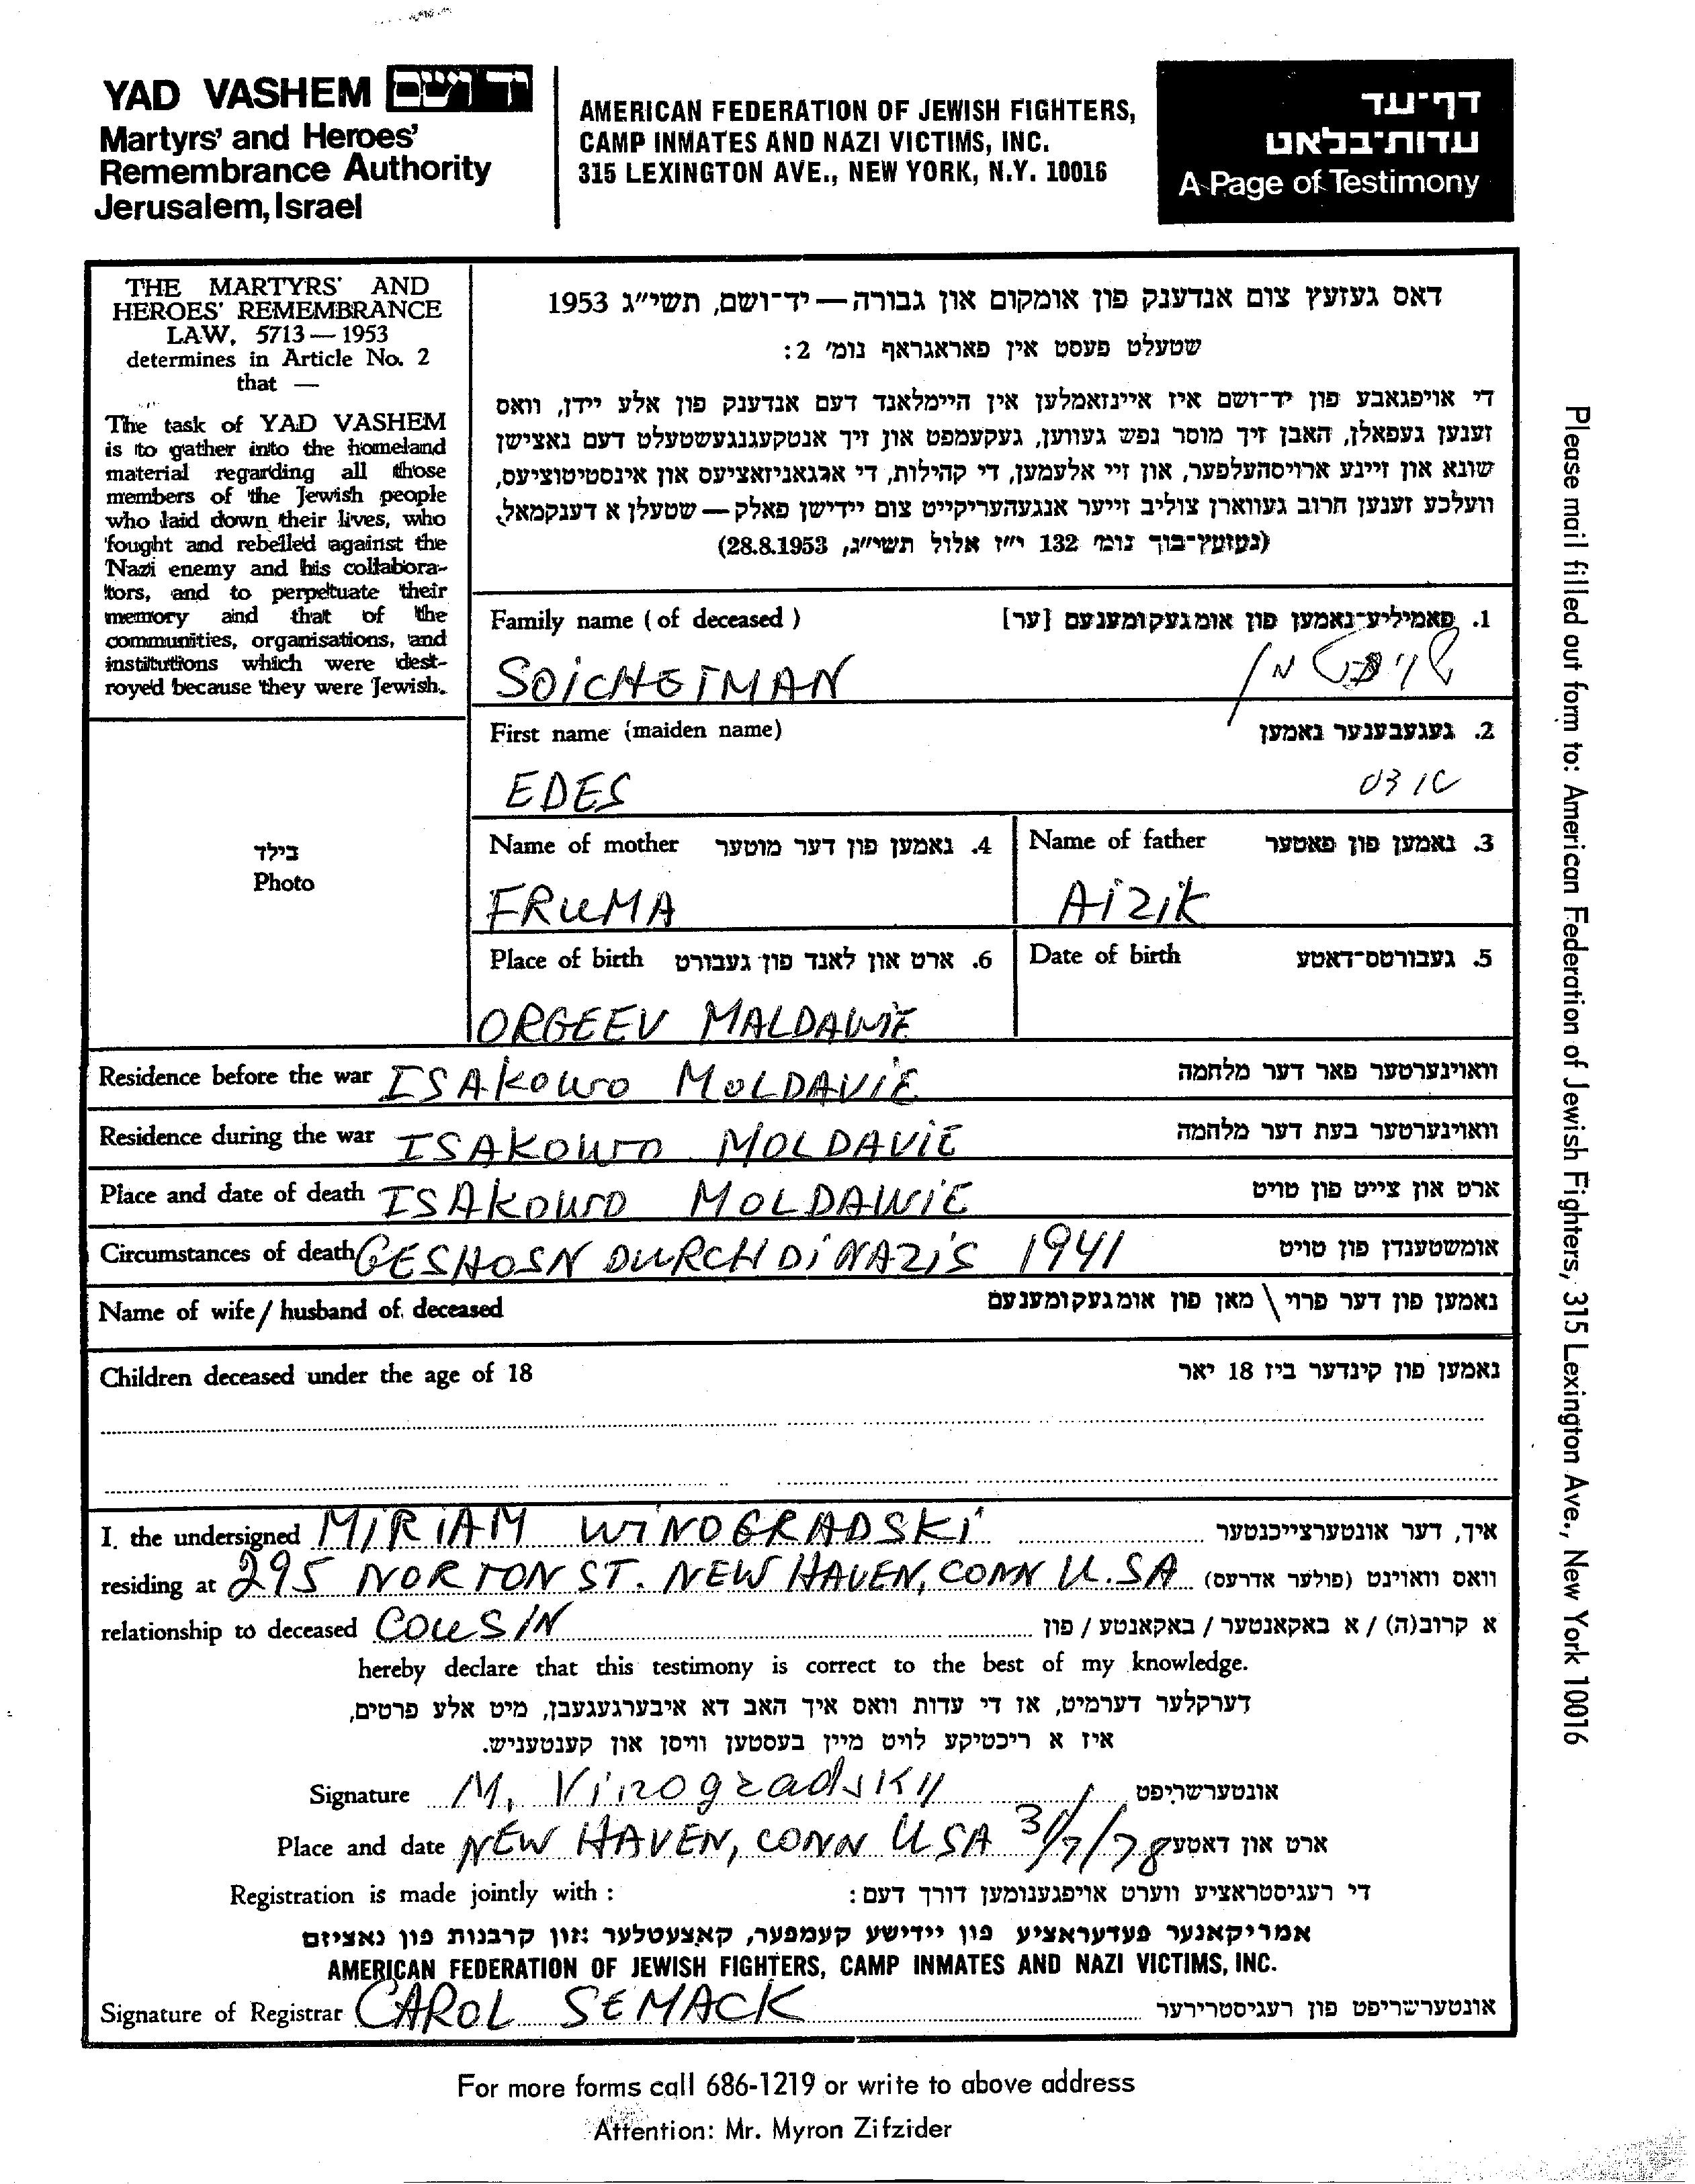 YAD VASHEM יד ושם
Martyrs' and Heroes'
Remembrance Authority
Jerusalem, Israel
AMERICAN FEDERATION OF JEWISH FIGHTERS,
CAMP INMATES AND NAZI VICTIMS, INC.
315 LEXINGTON AVE., NEW YORK, N.Y. 10016
דף־עד
עדות־בלאט
A Page of Testimony
THE MARTYRS' AND
HEROES' REMEMBRANCE
LAW, 5713 — 1953
determines in Article No. 2
that —
The task of YAD VASHEM
is to gather into the homeland
material regarding all those
members of the Jewish people
who laid down their lives, who
fought and rebelled against the
Nazi enemy and his collabora-
tors, and to perpetuate their
memory and that of the
communities, organisations, and
institutions which were dest-
royed because they were Jewish.
דאס געזעץ צום אנדענק פון אומקום און גבורה — יד־ושם, תשי״ג 1953
שטעלט פעסט אין פאראגראף נומ׳ 2:
די אויפגאבע פון יד־ושם איז איינזאמלען אין היימלאנד דעם אנדענק פון אלע יידן, וואס
זענען געפאלן, האבן זיך מוסר נפש געווען, געקעמפט און זיך אנטקעגנגעשטעלט דעם נאצישן
שונא און זיינע ארויסהעלפער, און זיי אלעמען, די קהילות, די ארגאניזאציעס און אינסטיטוציעס,
וועלכע זענען חרוב געווארן צוליב זייער אנגעהעריקייט צום יידישן פאלק — שטעלן א דענקמאל.
(געזעץ־בוך נומ׳ 132 י״ז אלול תשי״ג, 28.8.1953)
Family name (of deceased) 1. פאמיליע־נאמען פון אומגעקומענעם [ער]
SOICHETMAN
First name (maiden name) 2. געגעבענער נאמען
EDES
בילד
Photo
Name of mother 4. נאמען פון דער מוטער Name of father 3. נאמען פון פאטער
FRUMA AIZIK
Place of birth 6. ארט און לאנד פון געבורט Date of birth 5. געבורטס־דאטע
ORGEEV MALDAWIE
Residence before the war ISAKOWO MOLDAVIE וואוינערטער פאר דער מלחמה
Residence during the war ISAKOWO MOLDAVIE וואוינערטער בעת דער מלחמה
Place and date of death ISAKOWO MOLDAWIE ארט און צייט פון טויט
Circumstances of death GESHOSN DURCH DI NAZIS 1941 אומשטענדן פון טויט
Name of wife / husband of deceased נאמען פון דער פרוי \ מאן פון אומגעקומענעם
Children deceased under the age of 18 נאמען פון קינדער ביז 18 יאר
I, the undersigned MIRIAM WINOGRADSKI איך, דער אונטערצייכנטער
residing at 295 NORTON ST. NEW HAVEN, CONN U.S.A וואס וואוינט (פולער אדרעס)
relationship to deceased COUSIN א קרוב(ה) / א באקאנטער / באקאנטע / פון
hereby declare that this testimony is correct to the best of my knowledge.
דערקלער דערמיט, אז די עדות וואס איך האב דא איבערגעגעבן, מיט אלע פרטים,
איז א ריכטיקע לויט מיין בעסטען וויסן און קענטעניש.
Signature M. Vinogradsky אונטערשריפט
Place and date NEW HAVEN, CONN USA 31/7/78 ארט און דאטע
Registration is made jointly with : די רעגיסטראציע ווערט אויפגענומען דורך דעם :
אמריקאנער פעדעראציע פון יידישע קעמפער, קאצעטלער און קרבנות פון נאציזם
AMERICAN FEDERATION OF JEWISH FIGHTERS, CAMP INMATES AND NAZI VICTIMS, INC.
Signature of Registrar CAROL SEMACK אונטערשריפט פון רעגיסטרירער
For more forms call 686-1219 or write to above address
Attention: Mr. Myron Zifzider
Please mail filled out form to: American Federation of Jewish Fighters, 315 Lexington Ave., New York 10016